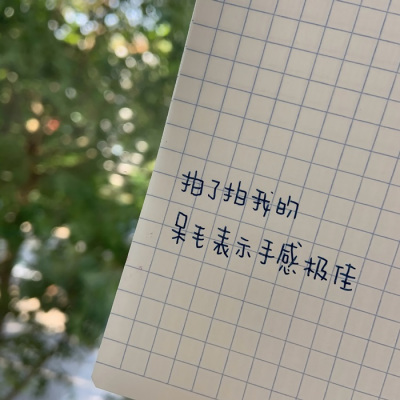 拍了拍我的
呆毛表示手感极佳